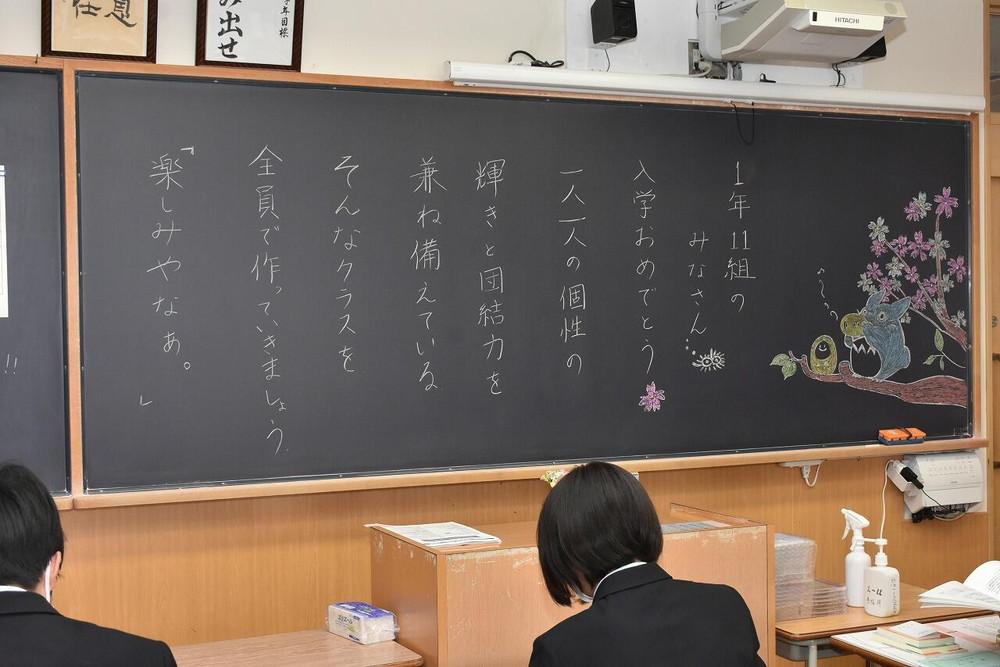 1年11組の
みなさん
入学おめでとう
一人一人の個性の
輝きと団結力を
兼ね備えている
そんなクラスを
全員で作っていきましょう
「楽しみやなぁ。」
!!
み出せ
年目標
HITACHI